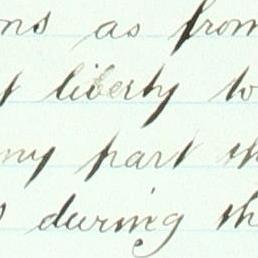 ns as from
liberty to
my part th
during th